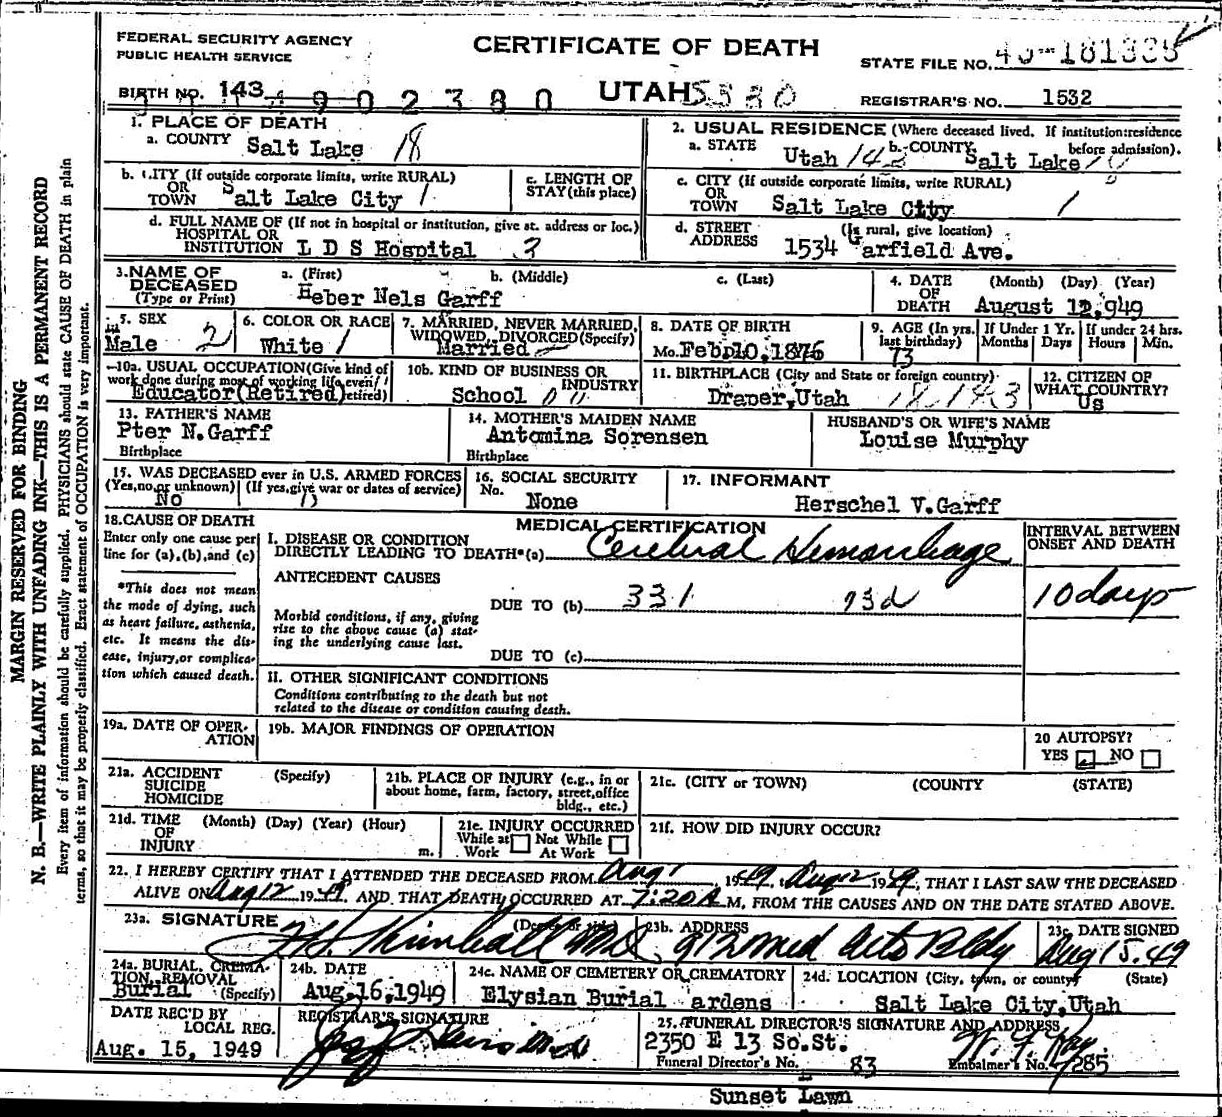 FEDERAL SECURITY AGENCY
PUBLIC HEALTH SERVICE
CERTIFICATE OF DEATH
STATE FILE NO.
BIRTH NO. 143 902380
UTAH
REGISTRAR'S NO. 1532
1. PLACE OF DEATH
a. COUNTY Salt Lake 18
2. USUAL RESIDENCE (Where deceased lived. If institution:residence before admission).
a. STATE Utah 143 b. COUNTY Salt Lake
b. CITY (If outside corporate limits, write RURAL) OR TOWN Salt Lake City 1
c. LENGTH OF STAY(this place)
c. CITY (If outside corporate limits, write RURAL) OR TOWN Salt Lake City 1
d. FULL NAME OF (If not in hospital or institution, give st. address or loc.) HOSPITAL OR INSTITUTION L D S Hospital 3
d. STREET ADDRESS (If rural, give location) 1534 Garfield Ave.
3. NAME OF DECEASED (Type or Print)
a. (First) b. (Middle) c. (Last)
Heber Nels Garff
4. DATE OF DEATH (Month) (Day) (Year)
August 12,949
5. SEX Male 2
6. COLOR OR RACE White 1
7. MARRIED, NEVER MARRIED, WIDOWED, DIVORCED(Specify) Married
8. DATE OF BIRTH Mo.Feb.10,1876
9. AGE (In yrs. last birthday) 73
If Under 1 Yr. Months Days
If under 24 hrs. Hours Min.
10a. USUAL OCCUPATION(Give kind of work done during most of working life,even if retired) Educator(Retired)
10b. KIND OF BUSINESS OR INDUSTRY School
11. BIRTHPLACE (City and State or foreign country) Draper,Utah
12. CITIZEN OF WHAT COUNTRY? US
13. FATHER'S NAME Pter N.Garff
Birthplace
14. MOTHER'S MAIDEN NAME Antomina Sorensen
Birthplace
HUSBAND'S OR WIFE'S NAME Louise Murphy
15. WAS DECEASED ever in U.S. ARMED FORCES (Yes,no,or unknown) (If yes,give war or dates of service) No
16. SOCIAL SECURITY No. None
17. INFORMANT Herschel V.Garff
18. CAUSE OF DEATH
Enter only one cause per line for (a),(b),and (c)
*This does not mean the mode of dying, such as heart failure, asthenia, etc. It means the disease, injury,or complication which caused death.
MEDICAL CERTIFICATION
I. DISEASE OR CONDITION DIRECTLY LEADING TO DEATH*(a) Cerebral Hemorrhage
INTERVAL BETWEEN ONSET AND DEATH
10 days
ANTECEDENT CAUSES
DUE TO (b) 331 93d
Morbid conditions, if any, giving rise to the above cause (a) stating the underlying cause last.
DUE TO (c)
II. OTHER SIGNIFICANT CONDITIONS
Conditions contributing to the death but not related to the disease or condition causing death.
19a. DATE OF OPERATION
19b. MAJOR FINDINGS OF OPERATION
20 AUTOPSY?
YES NO
21a. ACCIDENT SUICIDE HOMICIDE (Specify)
21b. PLACE OF INJURY (e.g., in or about home, farm, factory, street,office bldg., etc.)
21c. (CITY or TOWN) (COUNTY) (STATE)
21d. TIME OF INJURY (Month) (Day) (Year) (Hour) m.
21e. INJURY OCCURRED While at Work Not While At Work
21f. HOW DID INJURY OCCUR?
22. I HEREBY CERTIFY THAT I ATTENDED THE DECEASED FROM Aug 1, 1949, Aug 12 1949, THAT I LAST SAW THE DECEASED
ALIVE ON Aug 12 1949 AND THAT DEATH OCCURRED AT 7:20 A M, FROM THE CAUSES AND ON THE DATE STATED ABOVE.
23a. SIGNATURE Kimball MD
23b. ADDRESS 912 Med Arts Bldg
23c. DATE SIGNED Aug 15.49
24a. BURIAL, CREMATION, REMOVAL (Specify) Burial
24b. DATE Aug.16,1949
24c. NAME OF CEMETERY OR CREMATORY Elysian Burial ardens
24d. LOCATION (City, town, or county) (State) Salt Lake City,Utah
DATE REC'D BY LOCAL REG. Aug. 15, 1949
REGISTRAR'S SIGNATURE
25. FUNERAL DIRECTOR'S SIGNATURE AND ADDRESS
2350 E 13 So.St.
Funeral Director's No. 83 Embalmer's No. 285
Sunset Lawn
MARGIN RESERVED FOR BINDING
N. B.—WRITE PLAINLY WITH UNFADING INK—THIS IS A PERMANENT RECORD
Every item of information should be carefully supplied. PHYSICIANS should state CAUSE OF DEATH in plain
terms, so that it may be properly classified. Exact statement of OCCUPATION is very important.